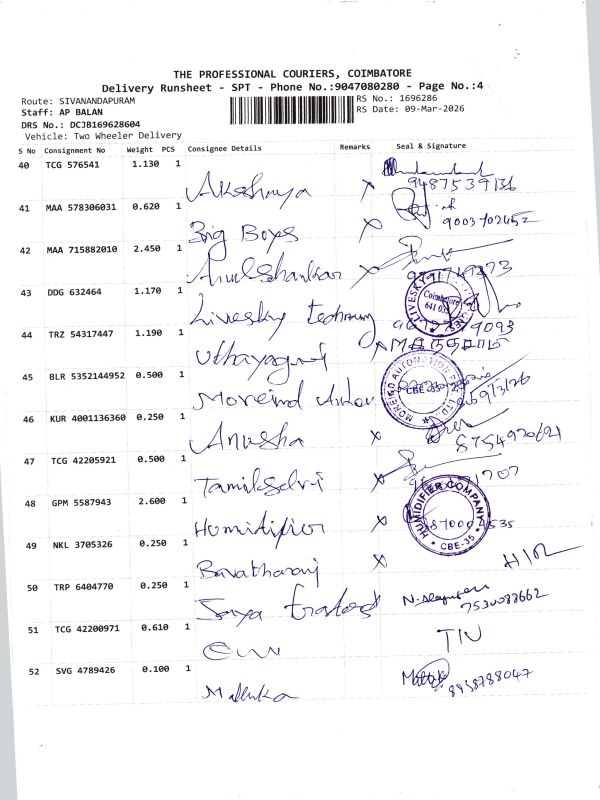 THE PROFESSIONAL COURIERS, COIMBATORE
Delivery Runsheet - SPT - Phone No.:9047080280 - Page No.:4
Route: SIVANANDAPURAM
RS No.: 1696286
Staff: AP BALAN
RS Date: 09-Mar-2026
DRS No.: DCJB169628604
Vehicle: Two Wheeler Delivery
S No Consignment No Weight PCS Consignee Details Remarks Seal & Signature
40 TCG 576541 1.130 1
Akshaya x 9487539136
41 MAA 578306031 0.620 1
Big Boys x 9003702452
42 MAA 715882010 2.450 1
Arulshankar x
43 DDG 632464 1.170 1
Livesky LIVESKY Coimbatore 641 035
44 TRZ 54317447 1.190 1
45 BLR 5352144952 0.500 1
MOREIND AUTOMATION CBE-35
46 KUR 4001136360 0.250 1
Anusha x 8754970621
47 TCG 42205921 0.500 1
Tamilselvi x
48 GPM 5587943 2.600 1
Humidifier x HUMIDIFIER COMPANY CBE-35
49 NKL 3705326 0.250 1
Bavatharani x
50 TRP 6404770 0.250 1
Traders 7530088662
51 TCG 42200971 0.610 1
52 SVG 4789426 0.100 1
Mallika 8938788047